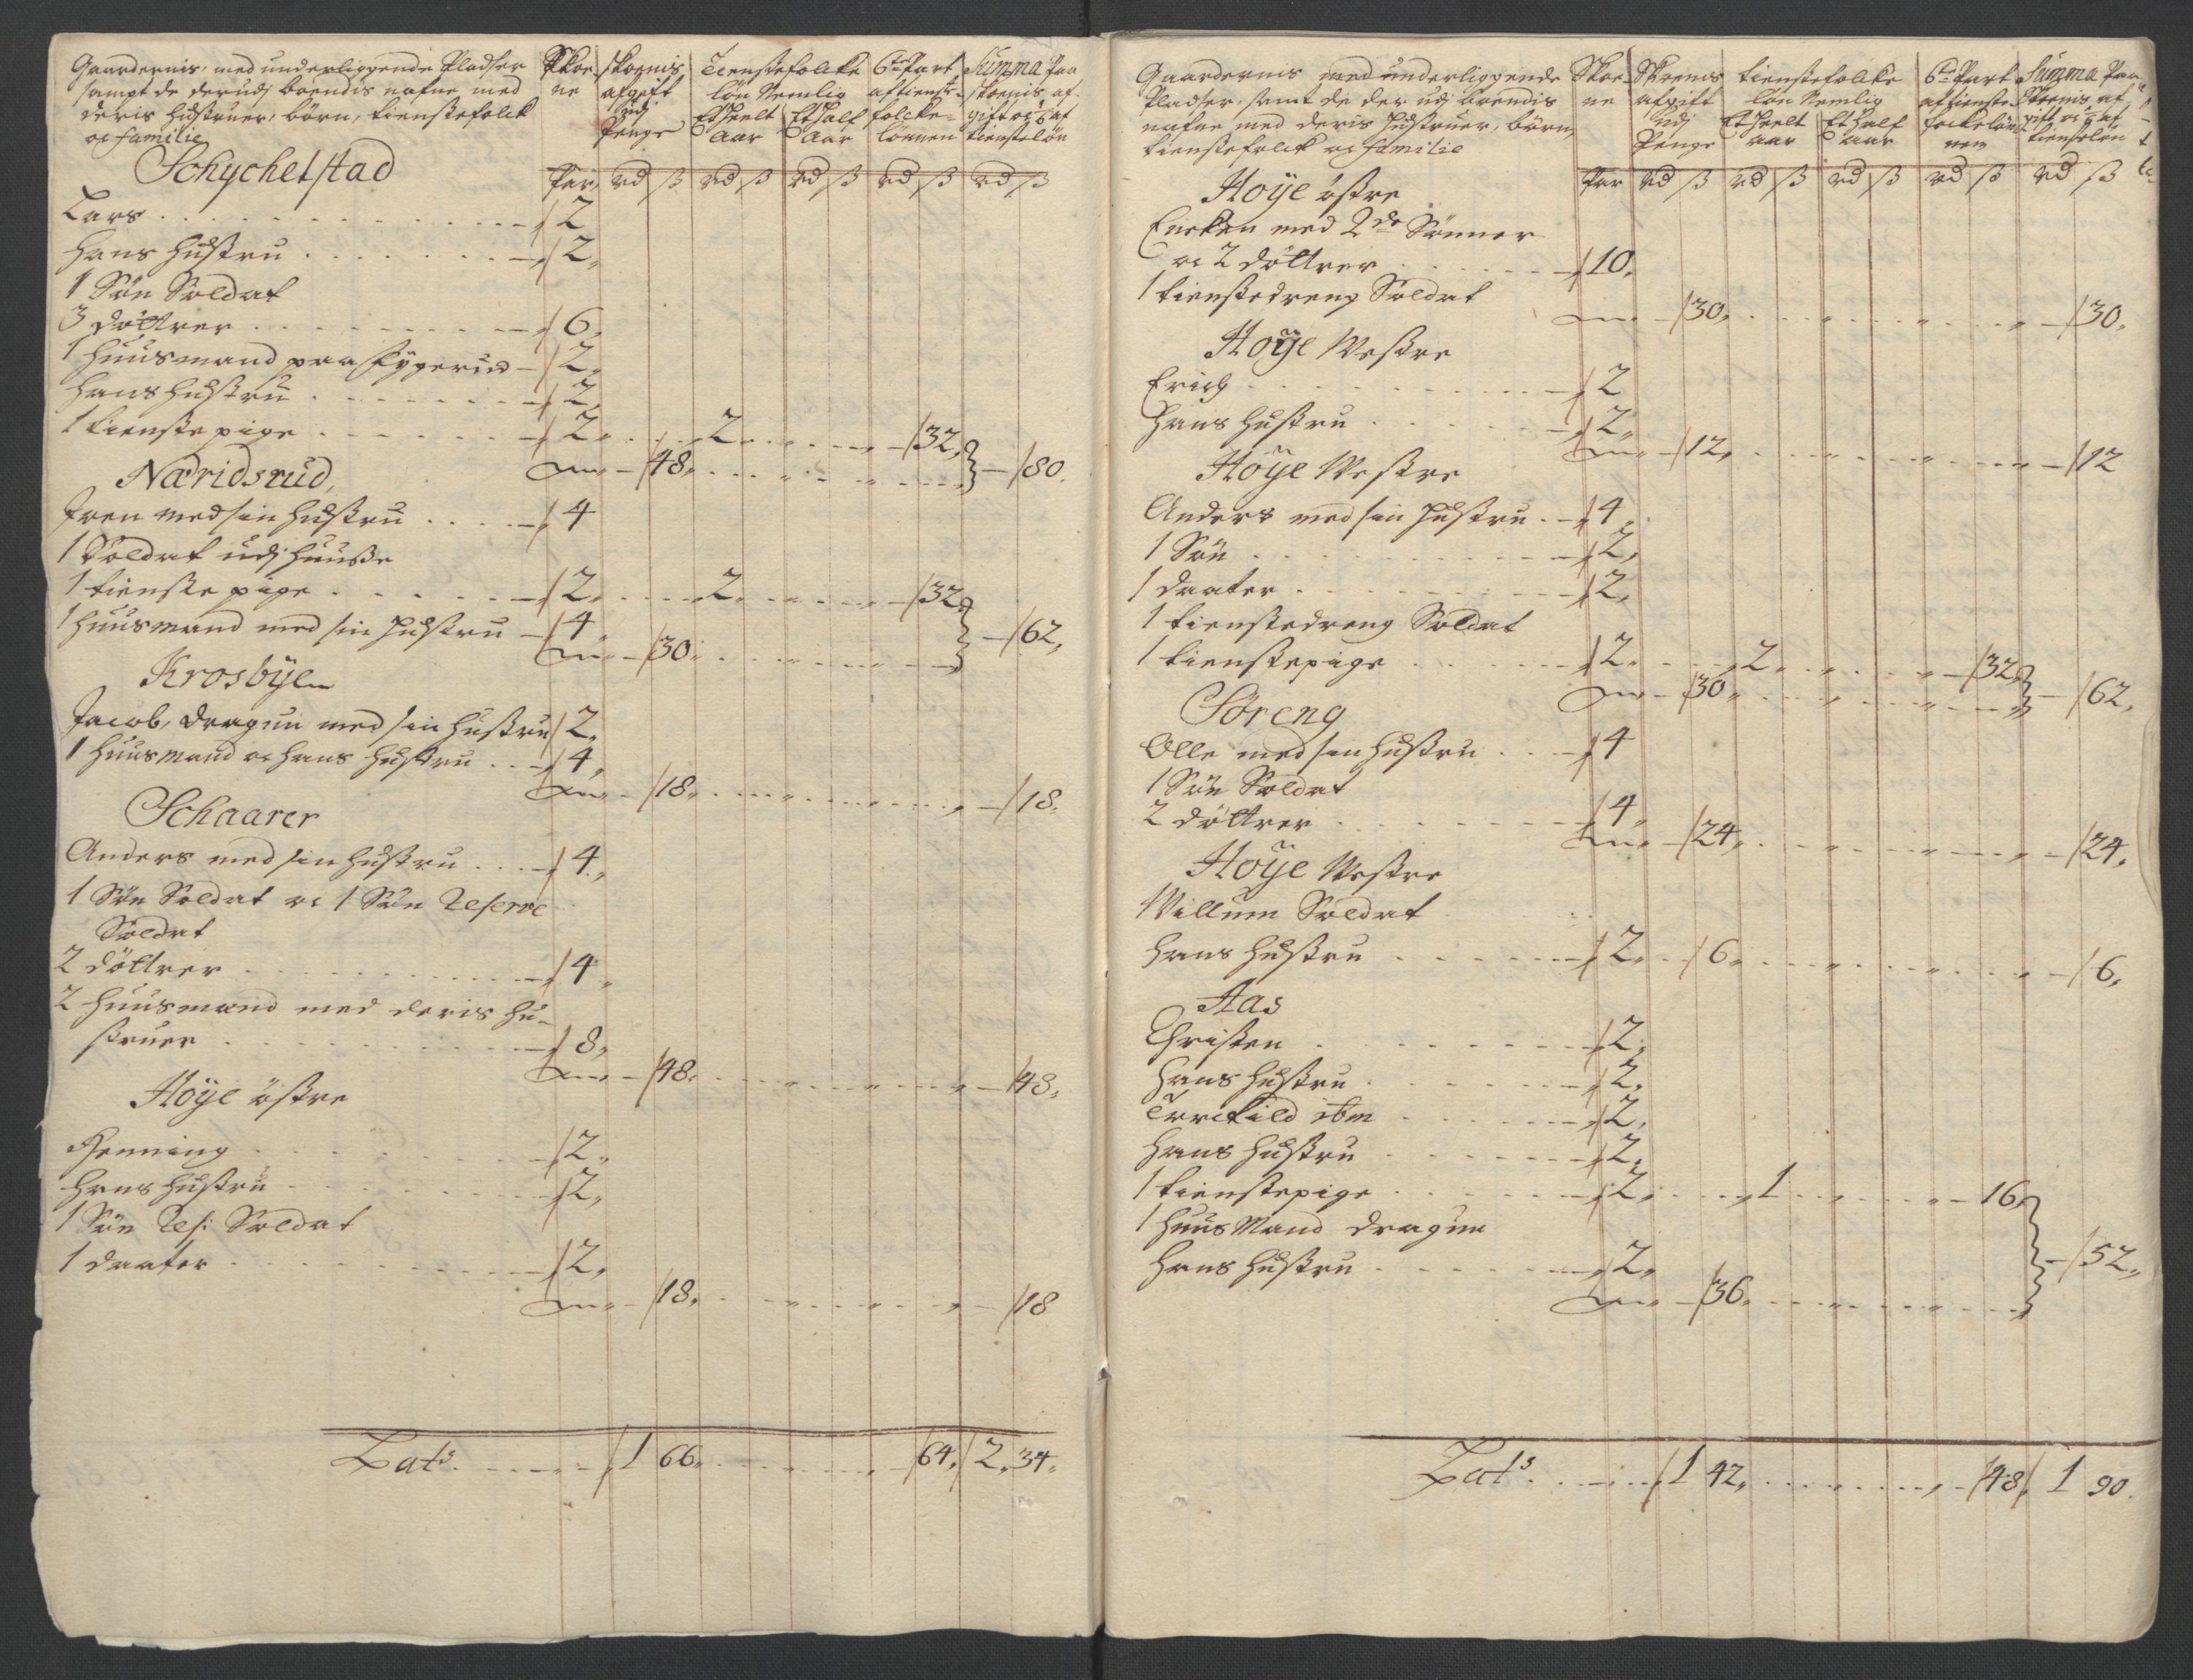 Gaardernis, med underliggende Pladser
sampt de derudj boendis nafne med
deris hustruer, börn, tienstefolck
oc familie
Skoe
ne
skoenis
afgift
udj
Penge
Tienstefolcke
lön Nemlig
Et Heelt
Aar
Et Half
Aar
6te Part
af tienste
folcke
lönnen
Summa Paa
skoenis af
gift oc 1/6 af
tienstelön
Par rd ß rd ß rd ß rd ß rd ß
Schychelstad
Lars 2
hans hustru 2
1 Sön Soldat
3 döttrer 6
1 huusmand paa 2
hans hustru 2
1 tienste pige 2 2 32
48 80
Næridsrud
Iven med sin hustru 4
1 Soldat udj huusse
1 tienste pige 2 2 32
1 huusmand med sin hustru 4
30 62
Krosbÿen
Jacob, dragun med sin hustru 2
1 huusmand oc hans hustru 4
18 18
Schaarer
Anders med sin hustru 4
1 Sön Soldat oc 1 Sön Reserve
Soldat
2 döttrer 4
2 huusmænd med deris hu-
struer 8
48 48
Höÿe östre
Henning 2
hans hustru 2
1 Sön Res: Soldat
1 daater 2
18 18
Lats 1 66 64 2 34
Gaardernis med underliggende
Pladser, samt de der udj boendis
nafne med deris hustruer, börn,
tienstefolck oc familie
Skoe
ne
Skoenis
afgift
udj
Penge
tienstefolcke
lön Nemlig
Et Heelt
aar
Et Half
aar
6te Part
af tienste
folckelön
nen
Summa Paa
Skoenis af
gift oc 1/6 af
tienstelön
Par rd ß rd ß rd ß rd ß rd ß
Höÿe östre
Encken med 2de Sönner
oc 2 döttrer 10
1 tienstedreng Soldat
30 30
Höÿe Westre
Erich 2
Hans hustru 2
12 12
Höÿe Westre
Anders med sin hustru 4
1 Sön 2
1 daater 2
1 tienstedreng Soldat
1 tienstepige 2 2 32
30 62
Söreng
Olle med sin hustru 4
1 Sön Soldat
2 döttrer 4
24 24
Höÿe Westre
Willum Soldat
hans hustru 2 6 6
Aas
Christen 2
hans hustru 2
Torckild ibm 2
hans hustru 2
1 tienstepige 2 1 16
1 huus Mand dragun
hans hustru 2
36 52
Lats 1 42 48 1 90